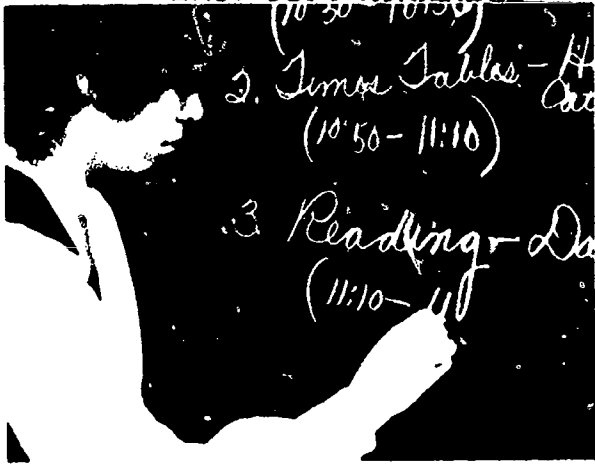 (10:50
2. Times Tables - H
Cat
(10:50 - 11:10)
3. Reading - Da
(11:10 - 11